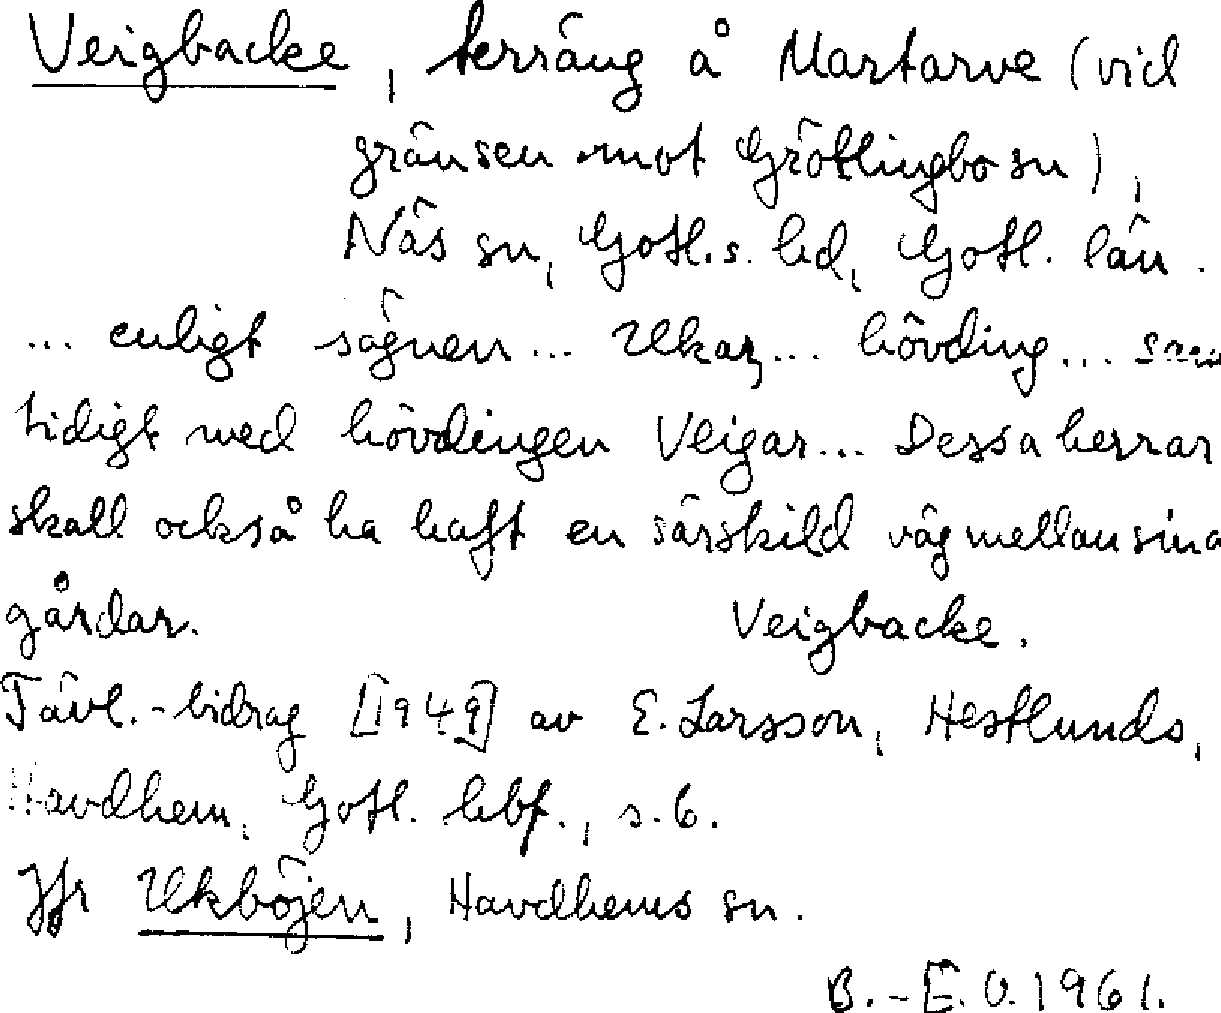 Veigbacke, terräng å Martarve (vid
gränsen mot Grötlingbo sn),
Näs sn, Gotl.s. hd, Gotl. län.
... enligt sägnen ... Ukar, ... hövding ... sam
tidigt med hövdingen Veigar ... Dessa herrar
skall också ha haft en särskild väg mellan sina
gårdar. Veigbacke.
Tävl.-bidrag [1949] av E. Larsson, Hestlunds,
Havdhem, Gotl. hbf., s. 6.
Jfr Ukböjen, Havdhems sn.
B.-E. O. 1961.